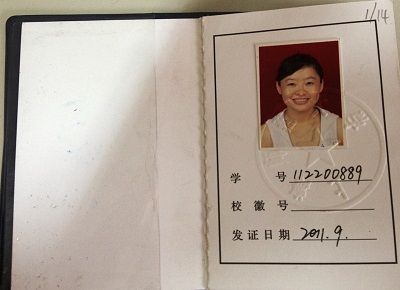 1/14
学 号 112200889
校 徽 号
发证日期 2011.9.